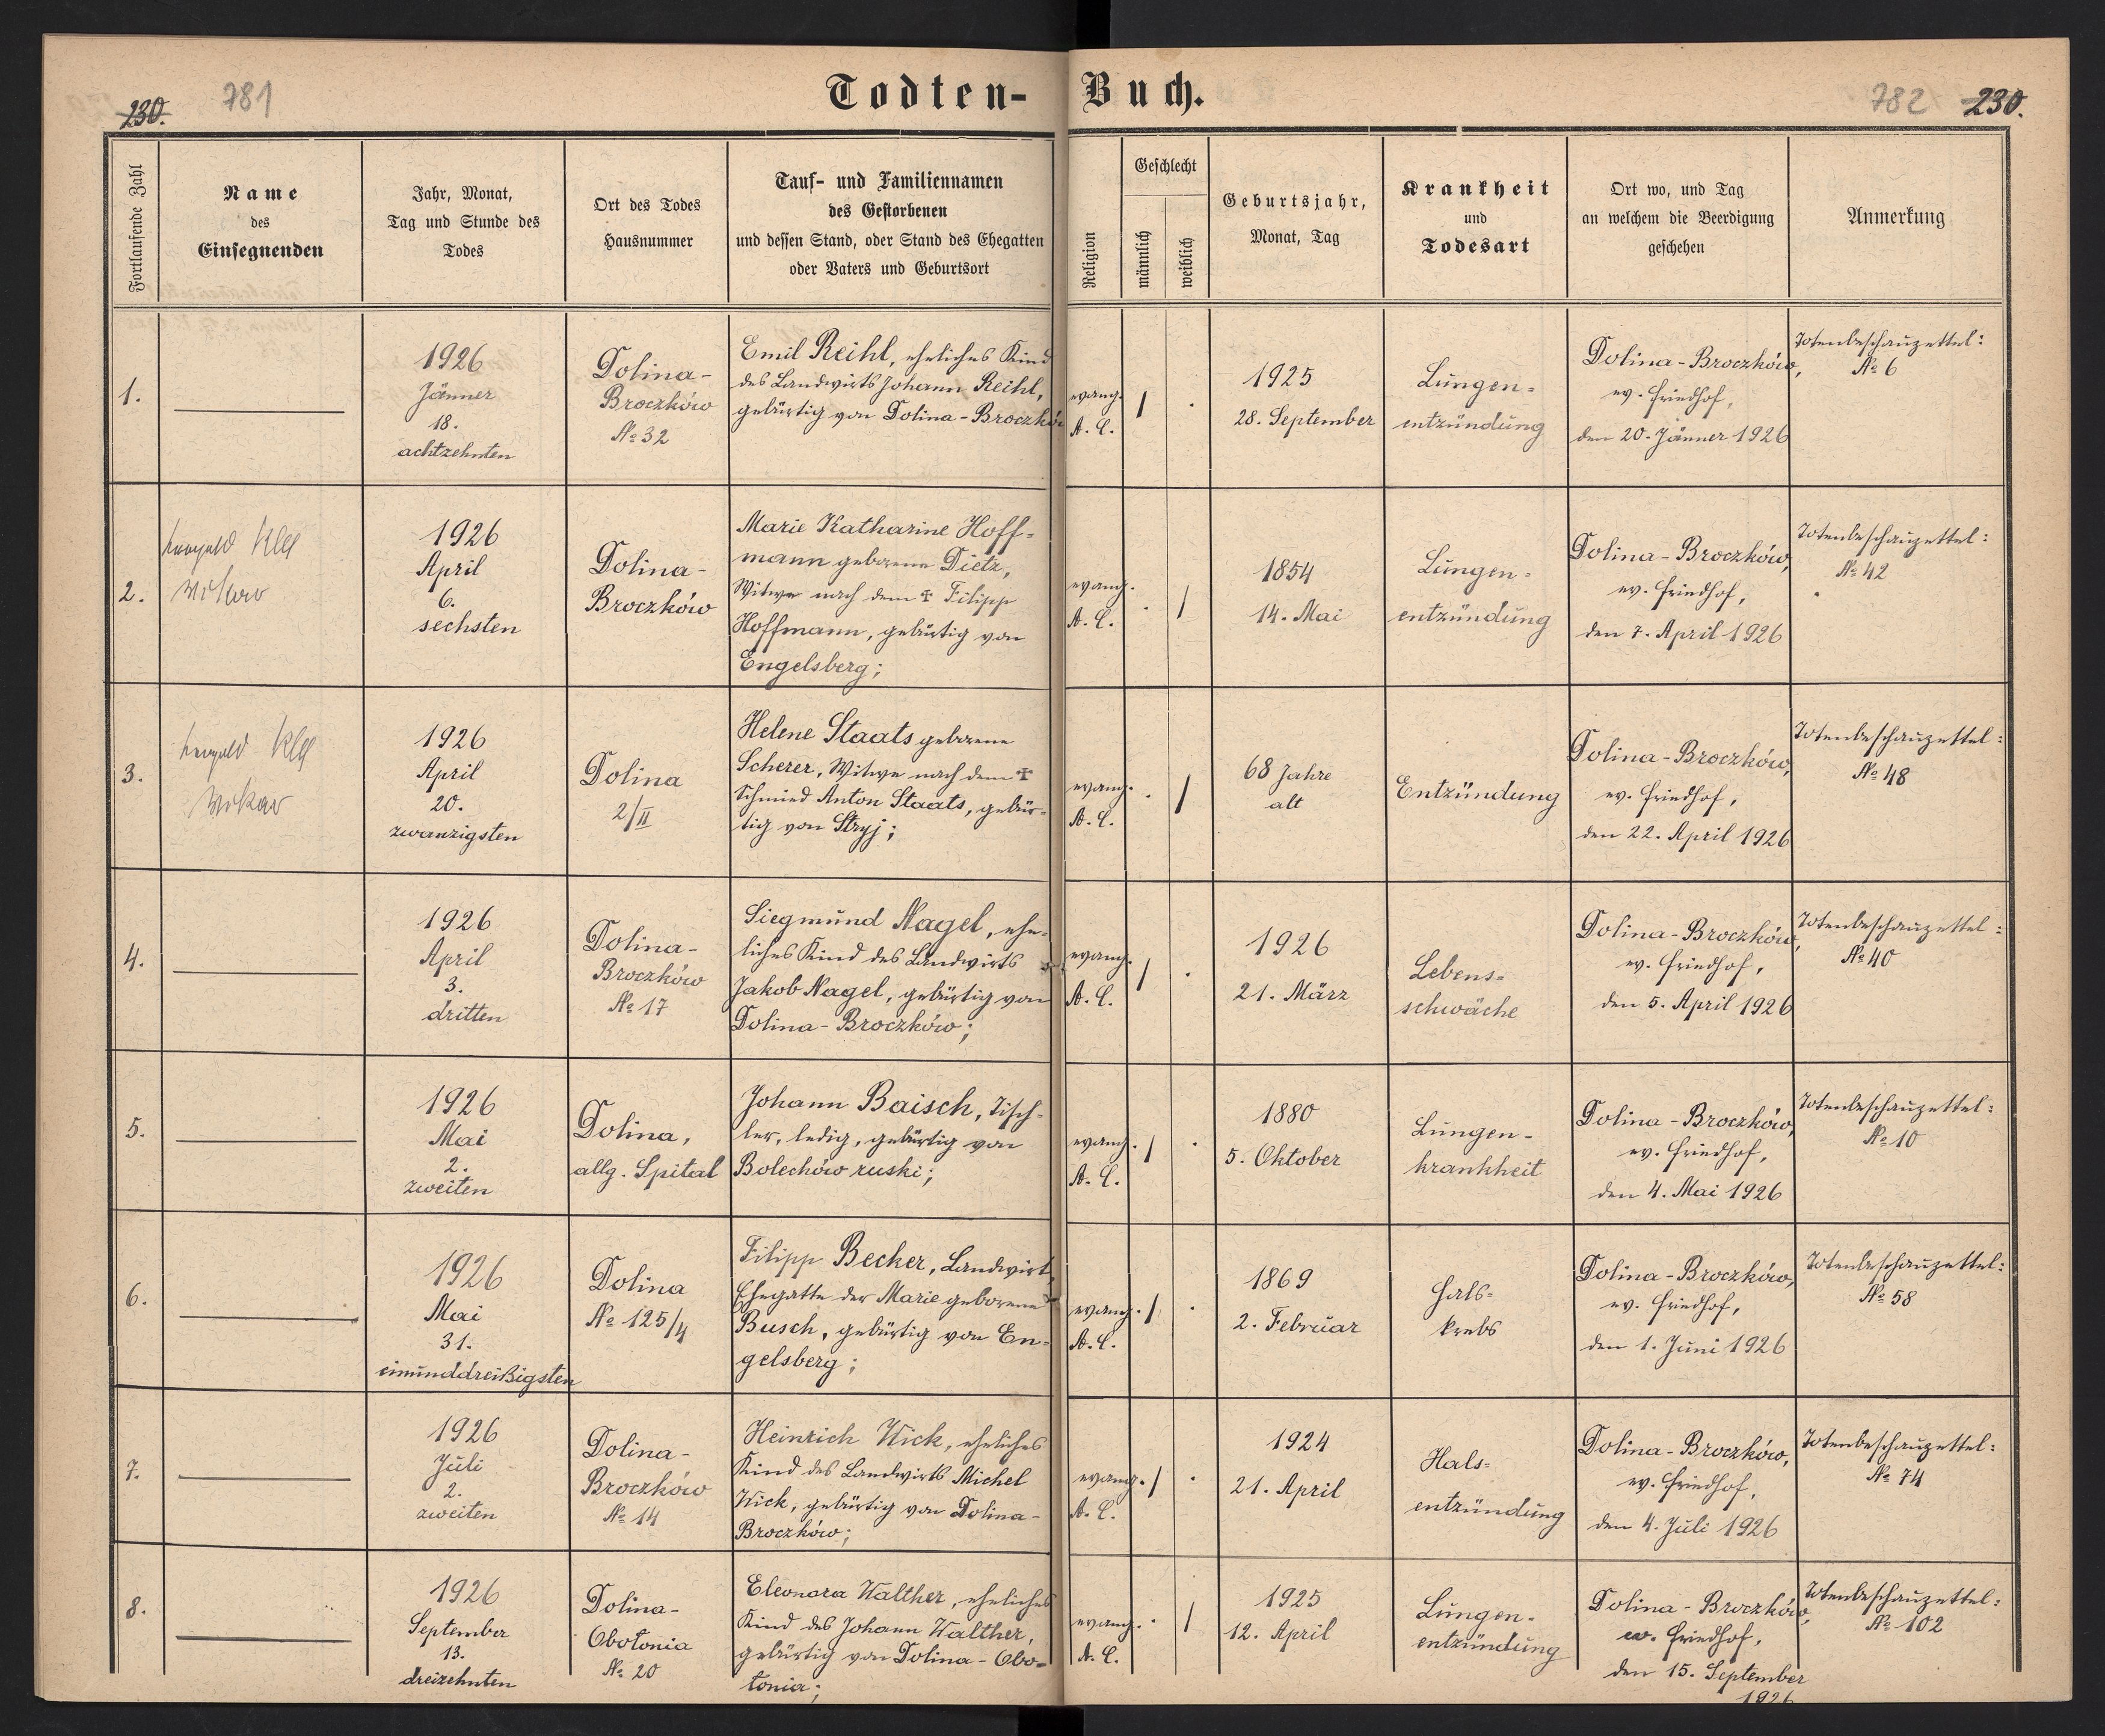 Todten- Buch.
230. 781
782 230.
Fortlaufende Zahl
Name
des
Einsegnenden
Jahr, Monat,
Tag und Stunde des
Todes
Ort des Todes
Hausnummer
Tauf- und Familiennamen
des Gestorbenen
und dessen Stand, oder Stand des Ehegatten
oder Vaters und Geburtsort
Religion
Geschlecht
männlich
weiblich
Geburtsjahr,
Monat, Tag
Krankheit
und
Todesart
Ort wo, und Tag
an welchem die Beerdigung
geschehen
Anmerkung
1.
1926
Jänner
18.
achtzehnten
Dolina-
Broczków
№ 32
Emil Reihl, eheliches Kind
des Landwirts Johann Reihl,
gebürtig von Dolina-Broczków
evang.
A. C.
1925
28. September
Lungen-
entzündung
Dolina-Broczków,
ev. Friedhof,
den 20. Jänner 1926
Totenbeschauzettel:
№ 6
2.
Leopold Klee
Vikar
1926
April
6.
sechsten
Dolina-
Broczków
Marie Katharine Hoff-
mann geborene Dietz,
Witwe nach dem ✝ Filipp
Hoffmann, gebürtig von
Engelsberg;
evang.
A. C.
1854
14. Mai
Lungen-
entzündung
Dolina-Broczków,
ev. Friedhof,
den 7. April 1926
Totenbeschauzettel:
№ 42
3.
Leopold Klee
Vikar
1926
April
20.
zwanzigsten
Dolina
2/II
Helene Staats geborene
Scherer, Witwe nach dem ✝
Schmied Anton Staats, gebür-
tig von Stryj;
evang.
A. C.
68 Jahre
alt
Entzündung
Dolina-Broczków,
ev. Friedhof,
den 22. April 1926
Totenbeschauzettel:
№ 48
4.
1926
April
3.
dritten
Dolina-
Broczków
№ 17
Siegmund Nagel, ehe-
liches Kind des Landwirts
Jakob Nagel, gebürtig von
Dolina-Broczków;
evang.
A. C.
1926
21. März
Lebens-
schwäche
Dolina-Broczków,
ev. Friedhof,
den 5. April 1926
Totenbeschauzettel:
№ 40
5.
1926
Mai
2.
zweiten
Dolina,
allg. Spital
Johann Baisch, Tisch-
ler, ledig, gebürtig von
Bolechów ruski;
evang.
A. C.
1880
5. Oktober
Lungen-
krankheit
Dolina-Broczków,
ev. Friedhof,
den 4. Mai 1926
Totenbeschauzettel:
№ 10
6.
1926
Mai
31.
einunddreißigsten
Dolina
№ 125/4
Filipp Becker, Landwirt,
Ehegatte der Marie geborene
Busch, gebürtig von En-
gelsberg;
evang.
A. C.
1869
2. Februar
Hals-
krebs
Dolina-Broczków,
ev. Friedhof,
den 1. Juni 1926
Totenbeschauzettel:
№ 58
7.
1926
Juli
2.
zweiten
Dolina-
Broczków
№ 14
Heinrich Wick, eheliches
Kind des Landwirts Michel
Wick, gebürtig von Dolina-
Broczków;
evang.
A. C.
1924
21. April
Hals-
entzündung
Dolina-Broczków,
ev. Friedhof,
den 4. Juli 1926
Totenbeschauzettel:
№ 74
8.
1926
September
13.
dreizehnten
Dolina-
Obołonia
№ 20
Eleonora Walther, eheliches
Kind des Johann Walther,
gebürtig von Dolina-Obo-
łonia;
evang.
A. C.
1925
12. April
Lungen-
entzündung
Dolina-Broczków,
ev. Friedhof,
den 15. September
1926
Totenbeschauzettel:
№ 102